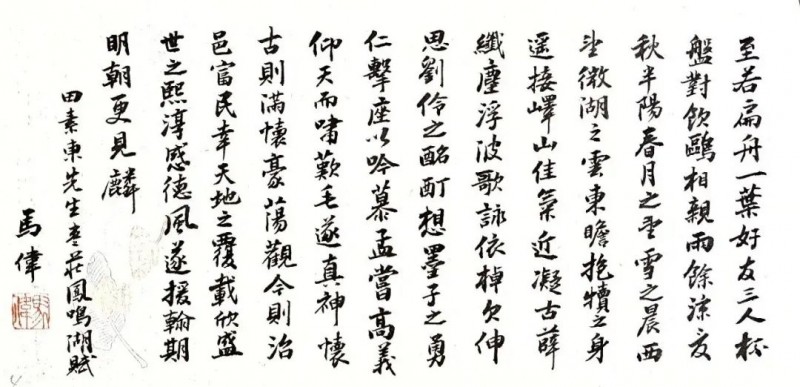 至若扁舟一葉好友三人杯
盤對飲鷗相親雨餘涼夜
秋半陽春月之望雪之晨西
望微湖之雲東瞻抱犢之身
遥接嶧山佳氣近凝古薛
纖塵浮波歌詠依棹欠伸
思劉伶之酩酊想墨子之勇
仁擊座以吟慕孟嘗高義
仰天而嘯歎毛遂真神懷
古則滿懷豪蕩觀今則治
邑富民幸天地之覆載欣盛
世之熙淳感德風遂援翰期
明朝更見麟
田素東先生棗莊鳳鳴湖賦
馬偉